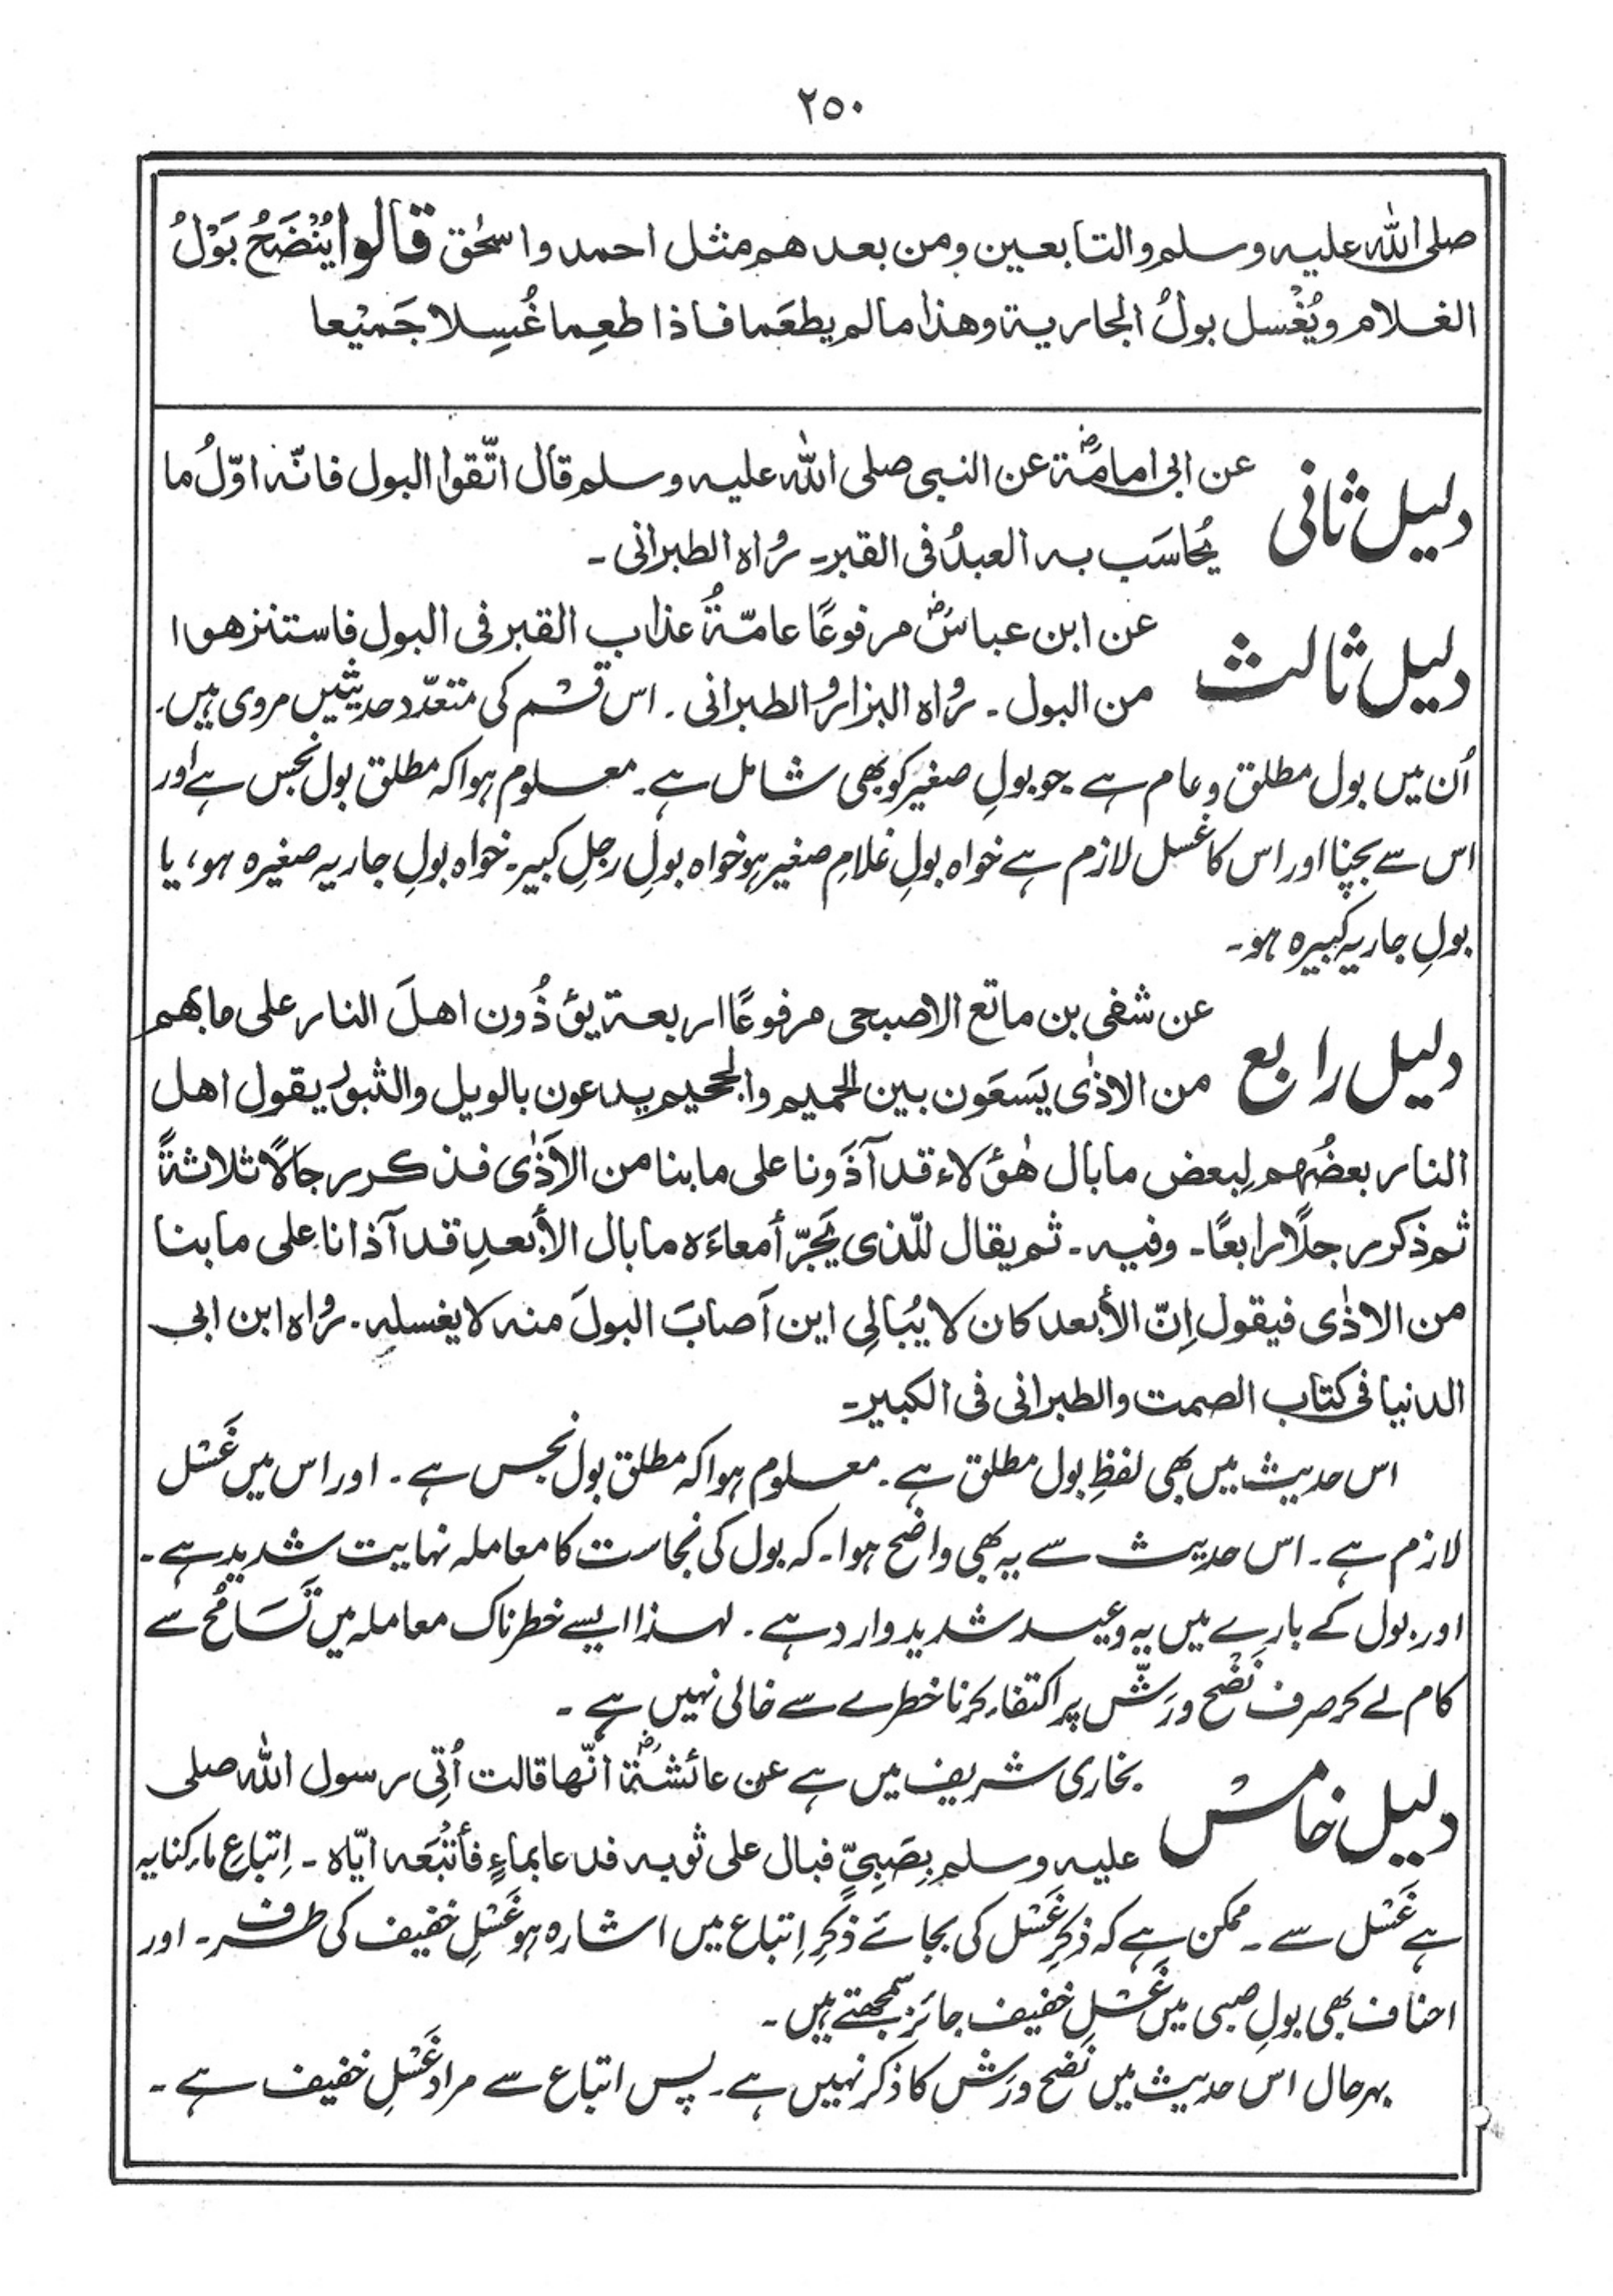 ٢٥٠
صلی اللّٰہ علیہ وسلم والتابعین ومن بعدھم مثل احمد واسحٰق قالوا یُنْضَحُ بَوْلُ
الغلام ویُغْسل بولُ الجاریۃ وھذا مالم یطعَما فاذا طعِما غُسِلا جَمیْعا
دلیل ثانی عن ابی امامۃؓ عن النبی صلی اللّٰہ علیہ وسلم قال اتّقوا البول فانّہ اوّلُ ما
یُحاسَب بہ العبدُ فی القبر۔ رُواہ الطبرانی۔
دلیل ثالث عن ابن عباسؓ مرفوعًا عامّۃُ عذاب القبر فی البول فاستنزھوا
من البول۔ رُواہ البزار والطبرانی۔ اس قسْم کی متعدّد حدیثیں مروی ہیں۔
اُن میں بول مطلق و عام ہے جو بولِ صغیر کو بھی شامل ہے۔ معلوم ہوا کہ مطلق بول نجس ہے اور
اس سے بچنا اور اس کا غسل لازم ہے خواہ بولِ غلامِ صغیر ہو خواہ بولِ رجلِ کبیر۔ خواہ بولِ جاریہ صغیرہ ہو، یا
بولِ جاریہ کبیرہ ہو۔
دلیل رابع عن شفی بن ماتع الاصبحی مرفوعًا اربعۃ یؤذُون اھلَ النار علی مابھم
من الاذٰی یَسعَون بین الحمیم والجحیم یدعون بالویل والثبور یقول اھل
النار بعضُھم لِبعض مابال ھٰؤلاء قد آذَونا علی مابنا من الاَذٰی فذکر رجالًا ثلاثۃً
ثم ذکر رجلًا رابعًا۔ وفیہ۔ ثم یقال للّذی یَجرّ أمعاءَہ مابال الأبعدِ قد آذانا علی مابنا
من الاذٰی فیقول اِنّ الأبعد کان لا یُبالِی این اَصابَ البولَ منہ لا یغسلہ۔ رُواہ ابن ابی
الدنیا فی کتاب الصمت والطبرانی فی الکبیر۔
اس حدیث میں بھی لفظِ بول مطلق ہے۔ معلوم ہوا کہ مطلق بول نجس ہے۔ اور اس میں غَسْل
لازم ہے۔ اس حدیث سے یہ بھی واضح ہوا۔ کہ بول کی نجاست کا معاملہ نہایت شدید ہے۔
اور بول کے بارے میں یہ وعید شدید وارد ہے۔ لہذا ایسے خطرناک معاملہ میں تَسَامُح سے
کام لے کر صرف نَضْح ورَشّ پر اکتفاء کرنا خطرے سے خالی نہیں ہے۔
دلیل خامسْ بخاری شریف میں ہے عن عائشۃؓ انّھا قالت اُتِی رسول اللّٰہ صلی
علیہ وسلم بِصَبِیّ فبال علی ثوبہ فدعا بماءٍ فأتْبَعَہ ایّاہ۔ اِتباعِ ماء کنایہ
ہے غَسْل سے۔ ممکن ہے کہ ذکرِ غَسْل کی بجائے ذکرِ اِتباع میں اشارہ ہو غَسْلِ خفیف کی طرف۔ اور
احناف بھی بولِ صبی میں غَسْلِ خفیف جائز سمجھتے ہیں۔
بہرحال اس حدیث میں نَضح ورَشّ کا ذکر نہیں ہے۔ پس اتباع سے مراد غَسْلِ خفیف ہے۔